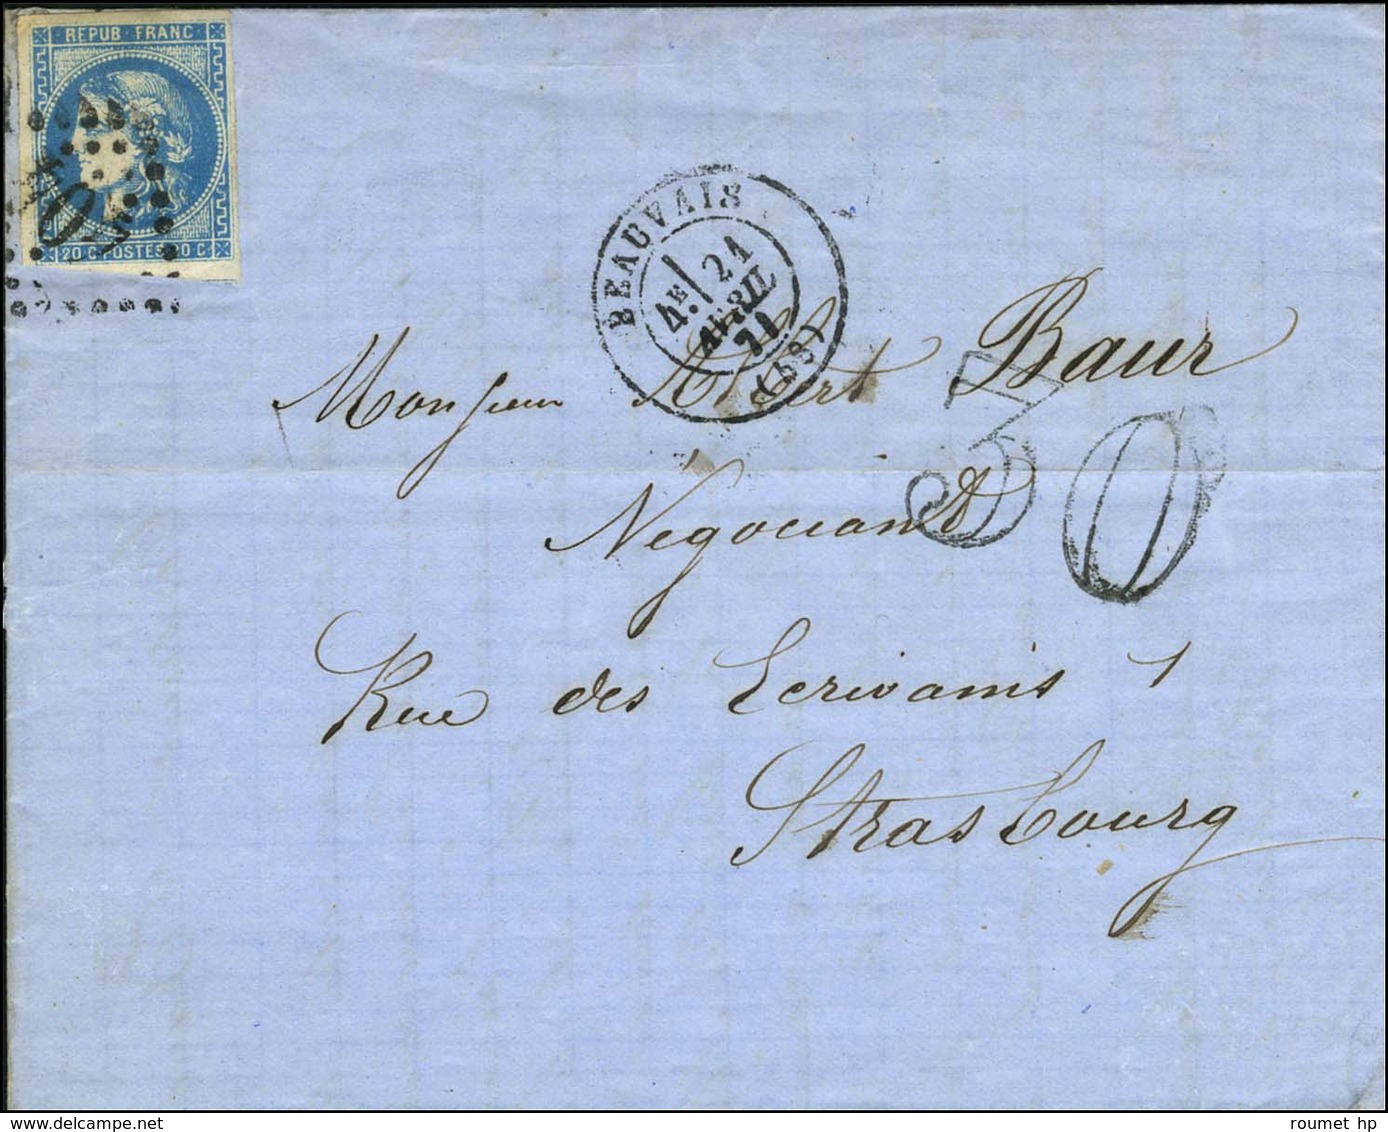 REPUB·FRANC
20 C·POSTES·20 C
BEAUVAIS
4E 21
AVRIL
71
Monsieur Albert Baur
30
Negociant
Rue des Ecrivains 1
Strasbourg
roumet hp
www.delcampe.net